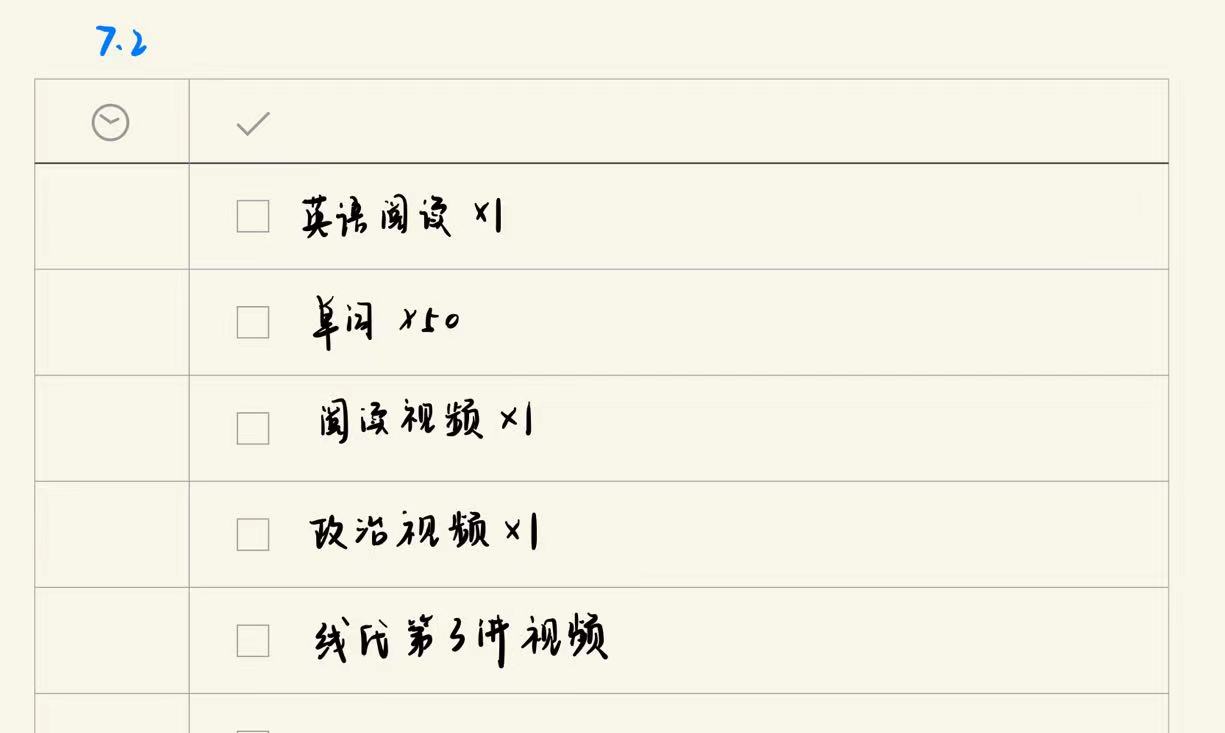 7.2
英语阅读 ×1
单词 ×50
阅读视频 ×1
政治视频 ×1
线代第3讲视频